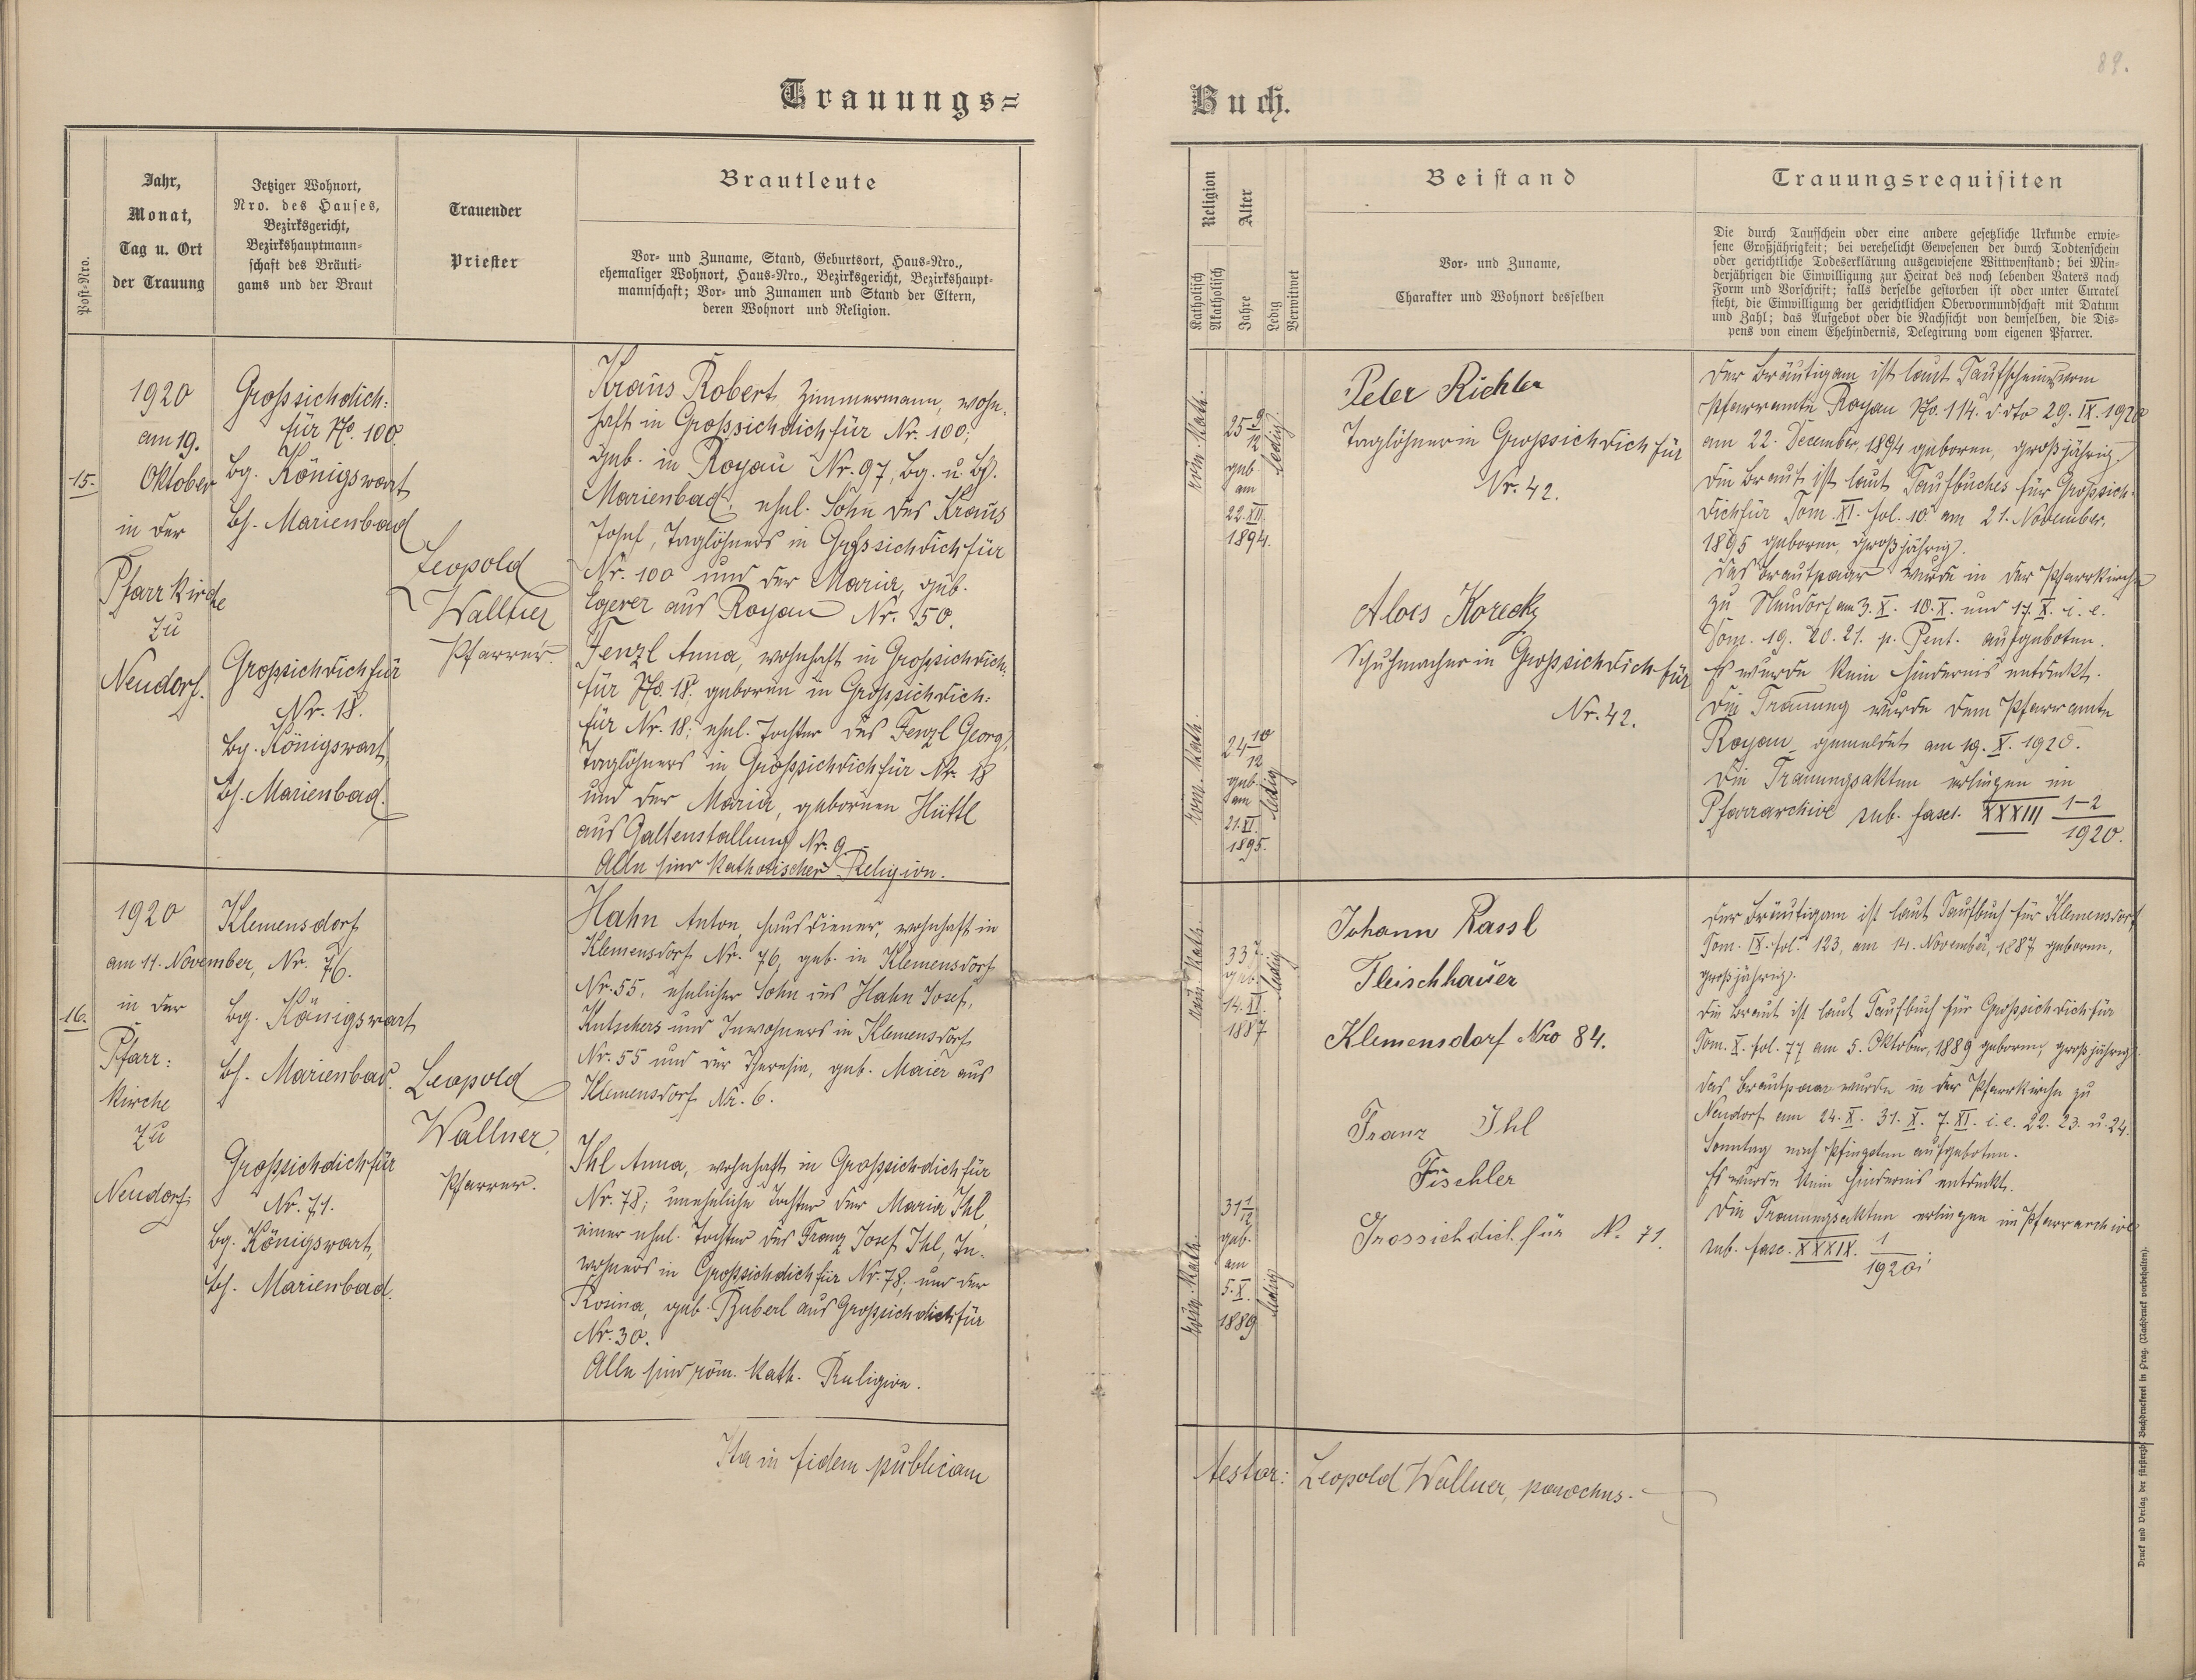 89.
Trauungs=
Buch.
Post-Nro.
Jahr,
Monat,
Tag u. Ort
der Trauung
Jetziger Wohnort,
Nro. des Hauses,
Bezirksgericht,
Bezirkshauptmann-
schaft des Bräuti-
gams und der Braut
Trauender
Priester
Brautleute
Vor- und Zuname, Stand, Geburtsort, Haus-Nro.,
ehemaliger Wohnort, Haus-Nro., Bezirksgericht, Bezirkshaupt-
mannschaft; Vor- und Zunamen und Stand der Eltern,
deren Wohnort und Religion.
Religion
Katholisch
Akatholisch
Alter
Jahre
Ledig
Verwitwet
Beistand
Vor- und Zuname,
Charakter und Wohnort desselben
Trauungsrequisiten
Die durch Taufschein oder eine andere gesetzliche Urkunde erwie-
sene Großjährigkeit; bei verehelicht Gewesenen der durch Todtenschein
oder gerichtliche Todeserklärung ausgewiesene Wittwenstand; bei Min-
derjährigen die Einwilligung zur Heirat des noch lebenden Vaters nach
Form und Vorschrift; falls derselbe gestorben ist oder unter Curatel
steht, die Einwilligung der gerichtlichen Obervormundschaft mit Datum
und Zahl; das Aufgebot oder die Nachsicht von demselben, die Dis-
pens von einem Ehehindernis, Delegirung vom eigenen Pfarrer.
15.
1920
am 19.
Oktober
in der
Pfarrkirche
zu
Neudorf.
Großsichdich-
für No. 100.
Bg. Königswart
Bh. Marienbad
Großsichdichfür
Nr. 18.
Bg. Königswart,
Bh. Marienbad.
Leopold
Wallner
Pfarrer.
Kraus Robert, Zimmermann, wohn-
haft in Großsichdichfür Nr. 100;
geb. in Royau Nr. 97, Bg. u. Bh.
Marienbad, ehel. Sohn des Kraus
Josef, Taglöhners in Großsichdichfür
Nr. 100 und der Maria, geb.
Egerer aus Royau Nr. 50.
Fenzl Anna, wohnhaft in Großsichdich-
für No. 18, geboren in Großsichdich-
für Nr. 18; ehel. Tochter des Fenzl Georg,
Taglöhners in Großsichdichfür Nr. 18
und der Maria, gebornen Hüttl
aus Galtenstallung Nr. 9.
Alle sind katholischer Religion.
röm. kath.
25 9/12
geb.
am
22. XII.
1894.
ledig
röm. kath.
24 10/12
geb.
am
21. XI.
1895.
ledig
Peter Richter
Taglöhner in Großsichdichfür
Nr. 42.
Alois Korecky
Schuhmacher in Großsichdichfür
Nr. 42.
Der Bräutigam ist laut Taufscheines vom
Pfarramte Royau No. 114. d dto 29. IX. 1920
am 22. December, 1894 geboren, großjährig.
Die Braut ist laut Taufbuches für Großsich-
dichfür Tom. XI. fol. 10 am 21. November,
1895 geboren, großjährig.
Das Brautpaar wurde in der Pfarrkirche
zu Neudorf am 3. X. 10. X. und 17. X. i. e.
Dom. 19. 20. 21. p. Pent. aufgeboten.
Es wurde kein Hindernis entdeckt.
Die Trauung wurde dem Pfarramte
Royau gemeldet am 19. X. 1920.
Die Trauungsakten erliegen im
Pfarrarchive sub. fasc. XXXIII 1-2/1920.
16.
1920
am 11. November,
in der
Pfarr-
kirche
zu
Neudorf.
Klemensdorf
Nr. 76.
Bg. Königswart
Bh. Marienbad.
Großsichdichfür
Nr. 71.
Bg. Königswart,
Bh. Marienbad.
Leopold
Wallner,
Pfarrer.
Hahn Anton, Hausdiener, wohnhaft in
Klemensdorf Nr. 76, geb. in Klemensdorf
Nr. 55, ehelicher Sohn des Hahn Josef,
Kutschers und Inwohners in Klemensdorf
Nr. 55 und der Theresia, geb. Maier aus
Klemensdorf Nr. 6.
Ihl Anna, wohnhaft in Großsichdichfür
Nr. 78; uneheliche Tochter der Maria Ihl,
einer ehel. Tochter des Franz Josef Ihl, In-
wohners in Großsichdichfür Nr. 78, und der
Rosina, geb. Buberl aus Großsichdichfür
Nr. 30.
Alle sind röm. kath. Religion.
röm. kath.
33
geb.
14. XI.
1887
ledig
röm. kath.
31 1/12
geb.
am
5. X.
1889
ledig
Johann Rassl
Fleischhauer
Klemensdorf Nro 84.
Franz Ihl
Tischler
Grossichdichfür N. 71.
Der Bräutigam ist laut Taufbuch für Klemensdorf
Tom. IX. fol. 123, am 14. November, 1887 geboren,
großjährig.
Die Braut ist laut Taufbuch für Großsichdichfür
Tom. X. fol. 77 am 5. Oktober, 1889 geboren, großjährig.
Das Brautpaar wurde in der Pfarrkirche zu
Neudorf am 24. X. 31. X. 7. XI. i. e. 22. 23. u. 24.
Sonntag nach Pfingsten aufgeboten.
Es wurde kein Hindernis entdeckt.
Die Trauungsakten erliegen im Pfarrarchive
sub. fasc. XXXIX. 1/1920.
Ita in fidem publicam
testor: Leopold Wallner, parochus.
Druck und Verlag der fürsterzb. Buchdruckerei in Prag. (Nachdruck vorbehalten).